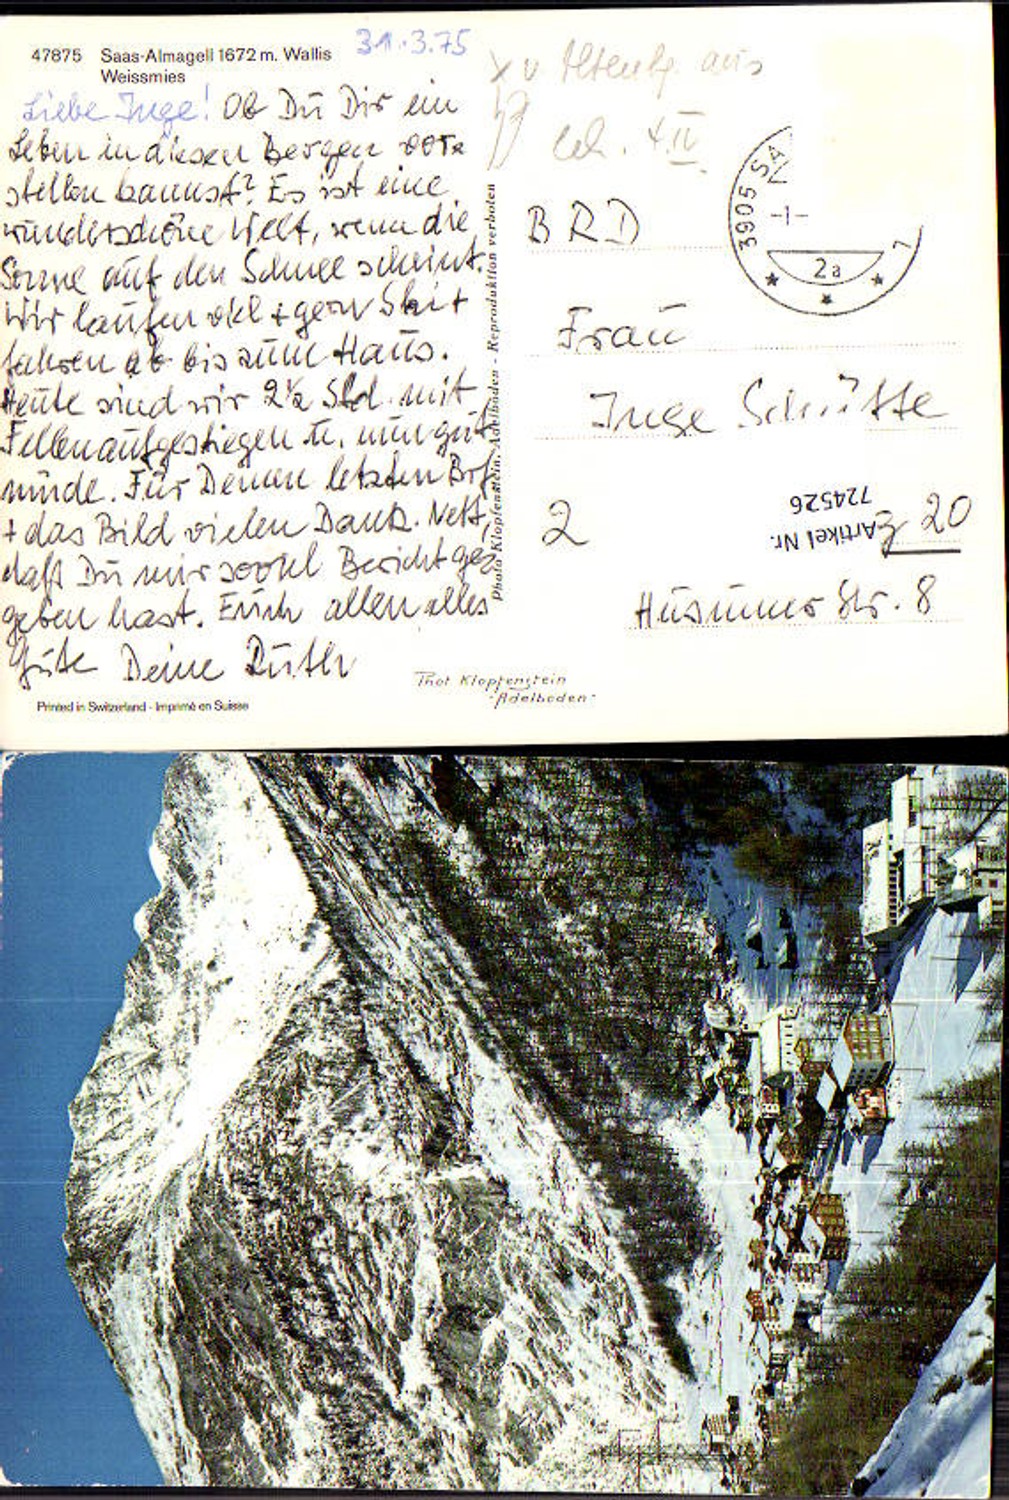 47875 Saas-Almagell 1672 m. Wallis
Weissmies
31.3.75
Liebe Inge! Ob Du Dir ein
Leben in diesen Bergen vor-
stellen kannst? Es ist eine
wunderschöne Welt, wenn die
Sonne auf den Schnee scheint.
Wir laufen viel + gern Ski +
fahren ab bis zum Haus.
Heute sind wir 2½ Std. mit
Fellen aufgestiegen u. nun gut
müde. Für Deinen letzten Brf.
+ das Bild vielen Dank. Nett,
daß Du mir soviel Bericht ge-
geben hast. Euch allen alles
Gute Deine Ruth
Printed in Switzerland - Imprimé en Suisse
Photo Klopfenstein, Adelboden - Reproduktion verboten
Phot Klopfenstein
Adelboden
v. aus
4.IV.
3905 SA
-1-
2a
BRD
Frau
Inge Schütte
2 20
Artikel Nr.
724526
Husumer Str. 8